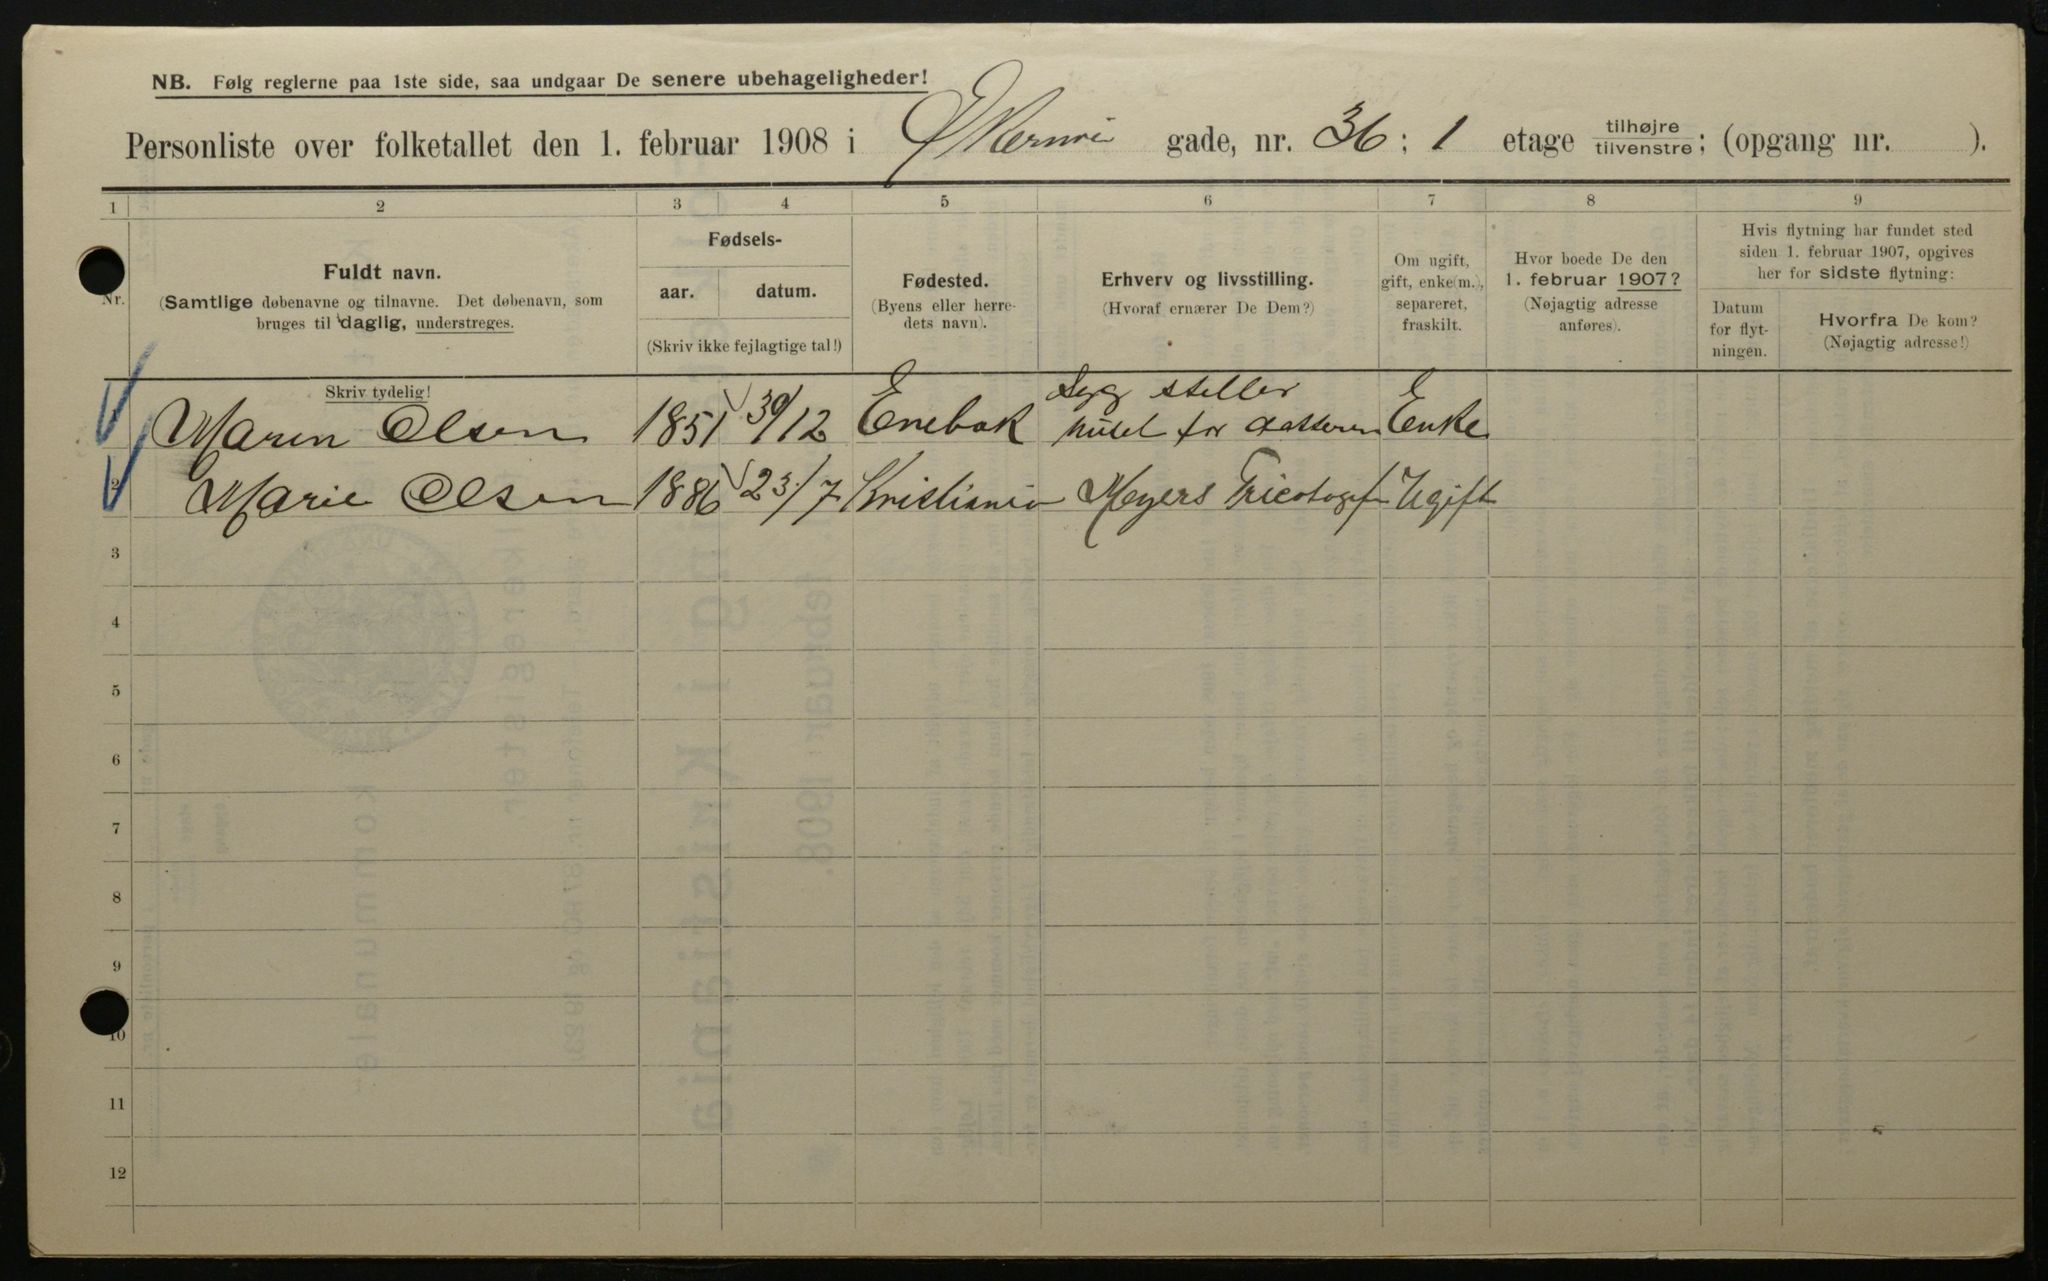 NB. Følg reglerne paa 1ste side, saa undgaar De senere ubehageligheder!
Personliste over folketallet den 1. februar 1908 i Økernvei gade, nr. 36 ; 1 etage tilhøjre tilvenstre ; (opgang nr. ).
1 2 3 4 5 6 7 8 9
Nr.
Fuldt navn.
(Samtlige døbenavne og tilnavne. Det døbenavn, som
bruges til daglig, understreges.
Skriv tydelig!
Fødsels-
aar. datum.
(Skriv ikke fejlagtige tal!)
Fødested.
(Byens eller herre-
dets navn).
Erhverv og livsstilling.
(Hvoraf ernærer De Dem?)
Om ugift,
gift, enke(m.),
separeret,
fraskilt.
Hvor boede De den
1. februar 1907?
(Nøjagtig adresse
anføres).
Hvis flytning har fundet sted
siden 1. februar 1907, opgives
her for sidste flytning:
Datum
for flyt-
ningen.
Hvorfra De kom?
(Nøjagtig adresse!)
1 Maren Olsen 1851 30/12 Enebak Syg steller
huset for datteren Enke
2 Marie Olsen 1886 23/7 Kristiania Meyers Tricotagef Ugift
3
4
5
6
7
8
9
10
11
12